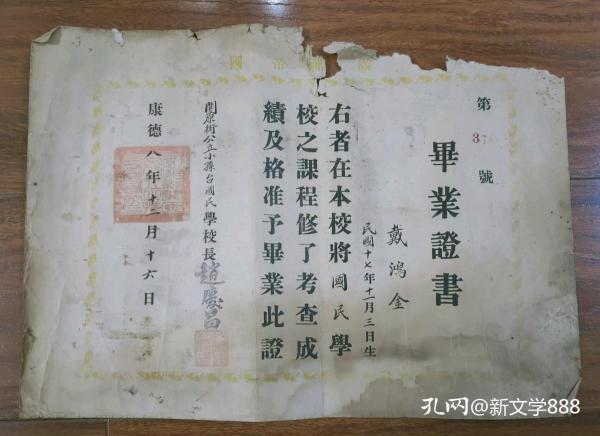 國帝
第 號
畢業證書
戴鴻金
民國十七年十一月三日生
右者在本校將國民學
校之課程修了考查成
績及格准予畢業此證
開原街公立小孫台國民學校長趙慶昌
康德八年十二月十六日
孔网@新文学888